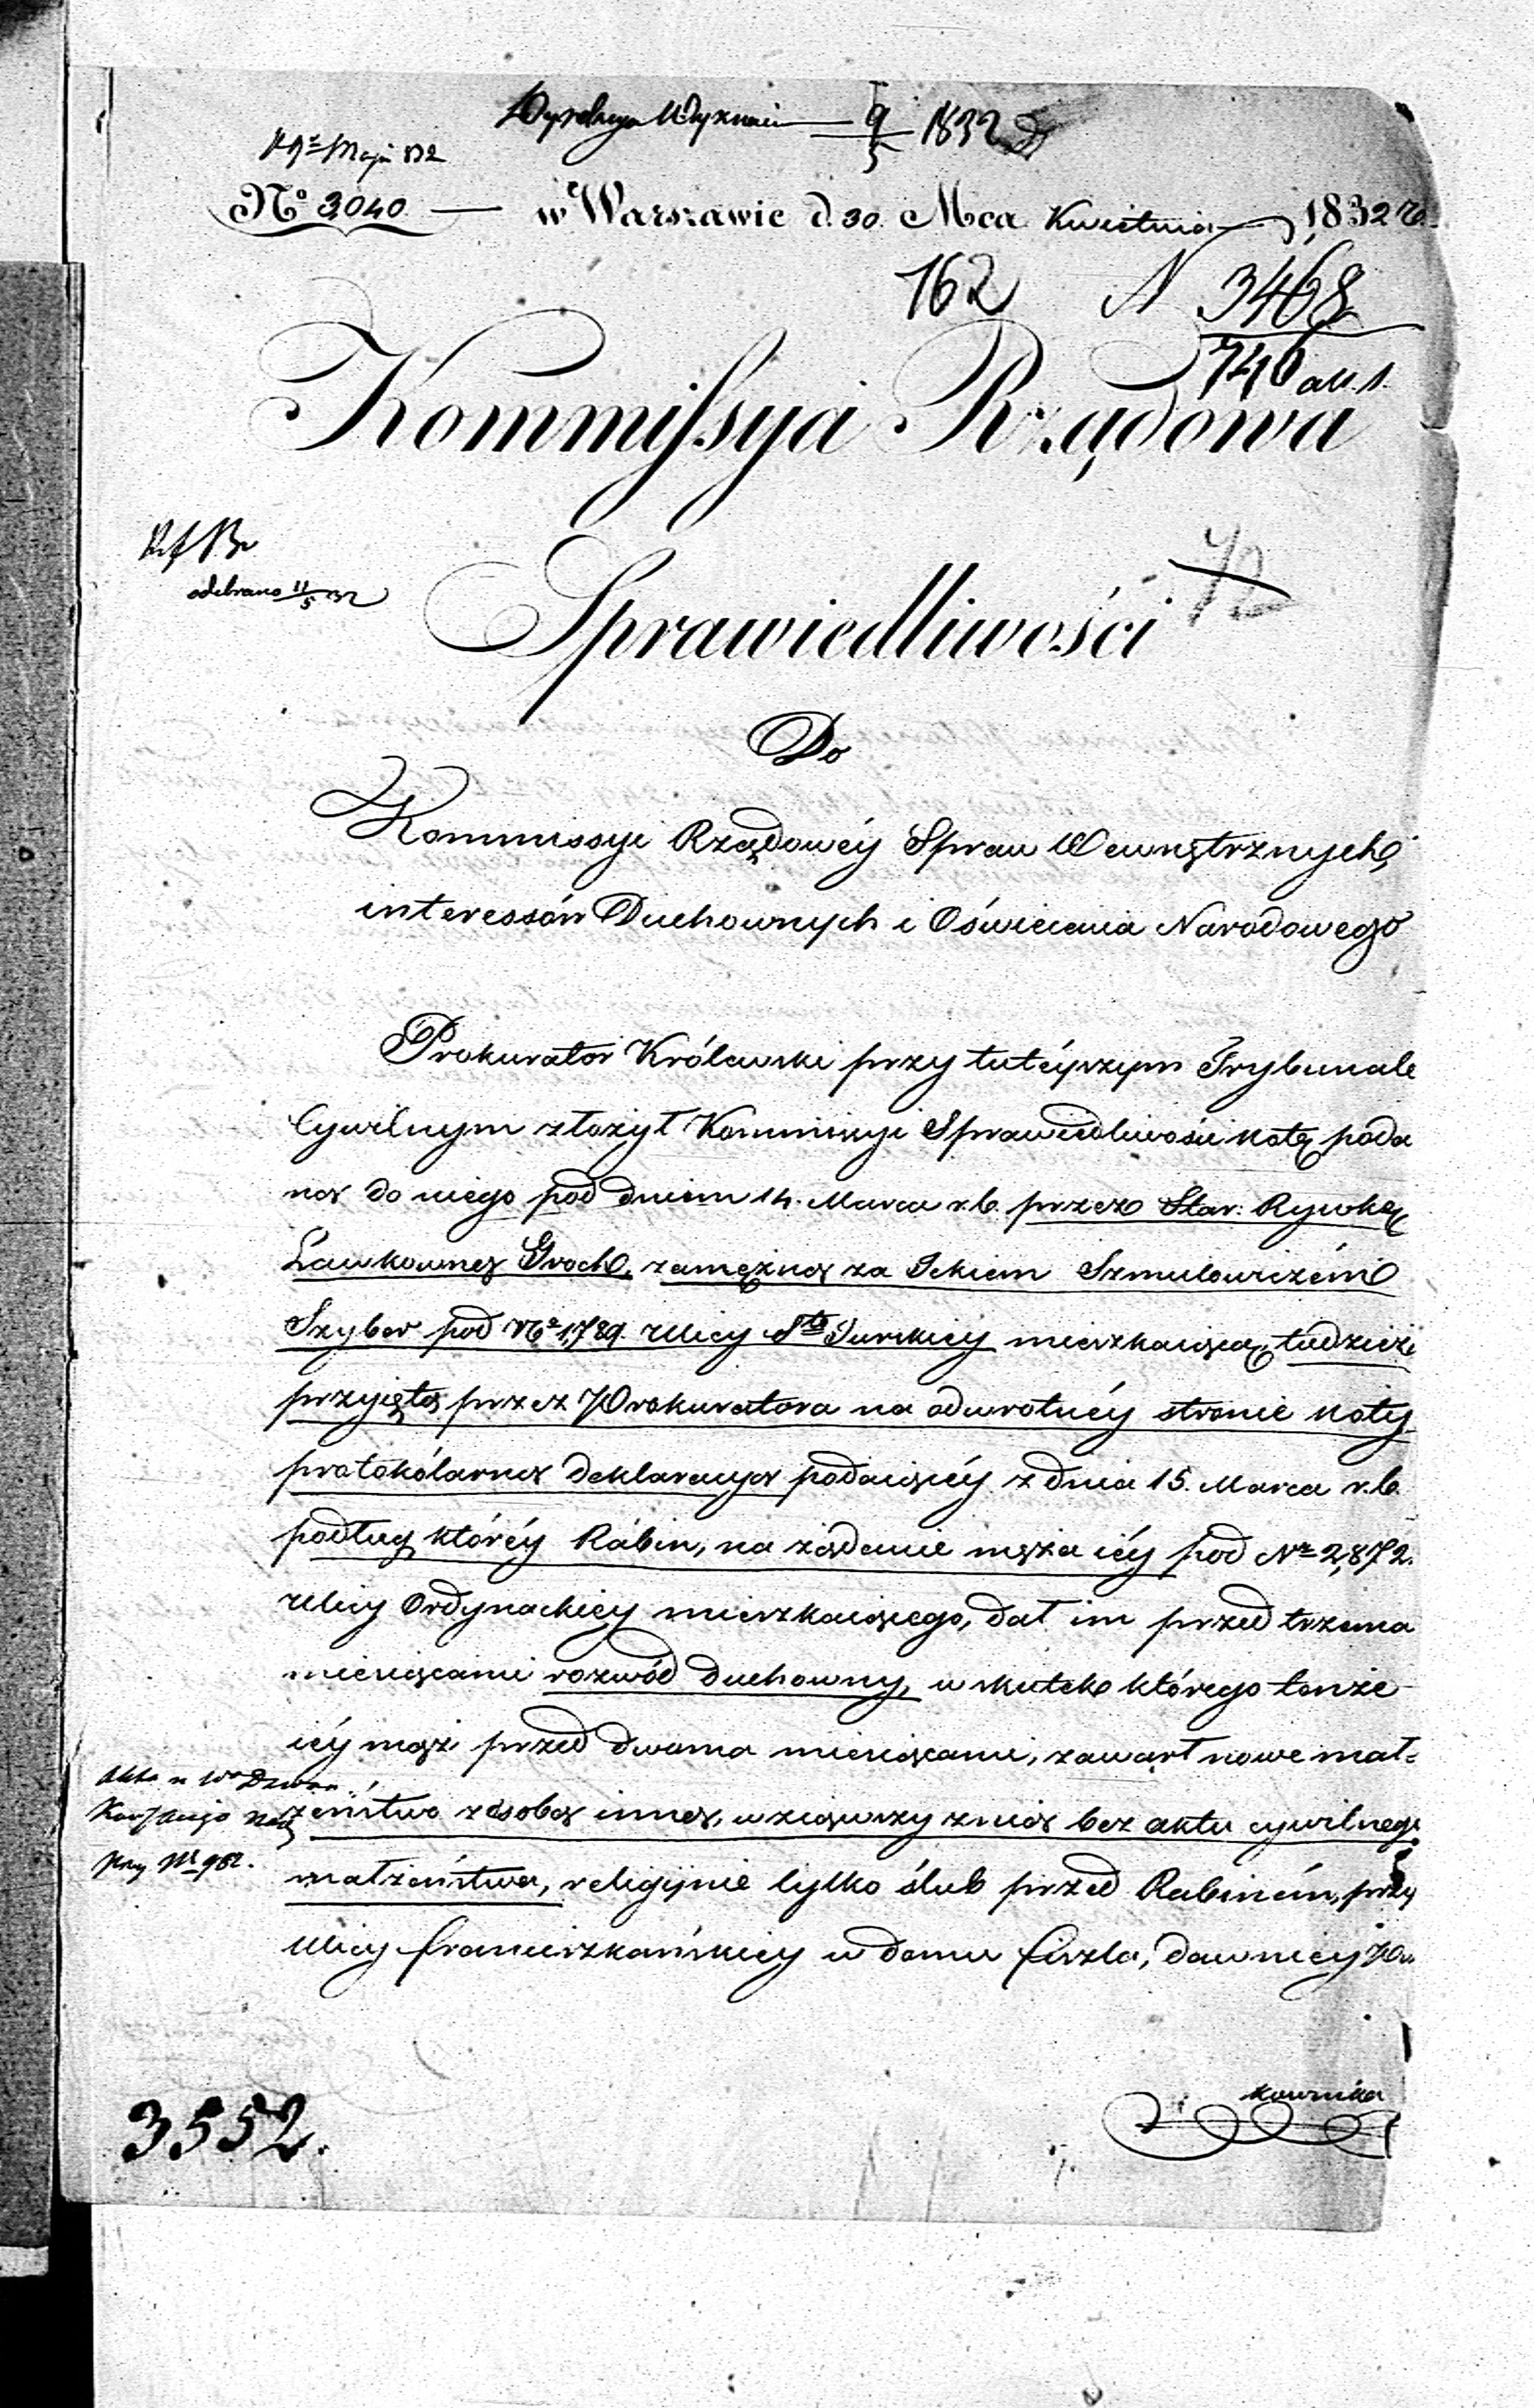 9/5 1832
Maja 832
No 3040 — w Warszawie d. 30. Mca Kwietnia 1832 r.
162 N 3468
746 ad 1.
Kommissya Rządowa
odebrano 11/5 832
Sprawiedliwości
Do
Kommissyi Rządowéy Spraw Wewnętrznych,
interessów Duchownych i Oświecenia Narodowego
Prokurator Królewski przy tutéyszym Trybunale
Cywilnym złożył Kommissyi Sprawiedliwości notę poda
ną do niego pod dniem 14. Marca r.b. przez Star: Rywkę
Ławkowną Groch, zamężną za Ickiem Szmulowiczém
Szyber pod No 1,789. ulicy Sto Jurskiey mieszkaiącą, tudzież
przyiętą przez Prokuratora na odwrotnéy stronie noty
protokólarną deklaracyą podaiącéy z dnia 15. Marca r.b.
podług któréy Rabin, na żądanie męża iéy pod Nr 2,872.
ulicy Ordynackiey mieszkaiącego, dał im przed trzema
miesiącami rozwód duchowny, w skutek którego tenże
iéy mąż przed dwoma miesiącami, zawarł nowe mał=
żeństwo z osobą inną, wziąwszy z nią bez aktu cywilnego
małżeństwa, religiynie tylko ślub przed Rabiném, przy
ulicy Franciszkańskiey w domu Fiszla, dawniey Pra
Akta u
przy Nr 982.
kownika
3552.